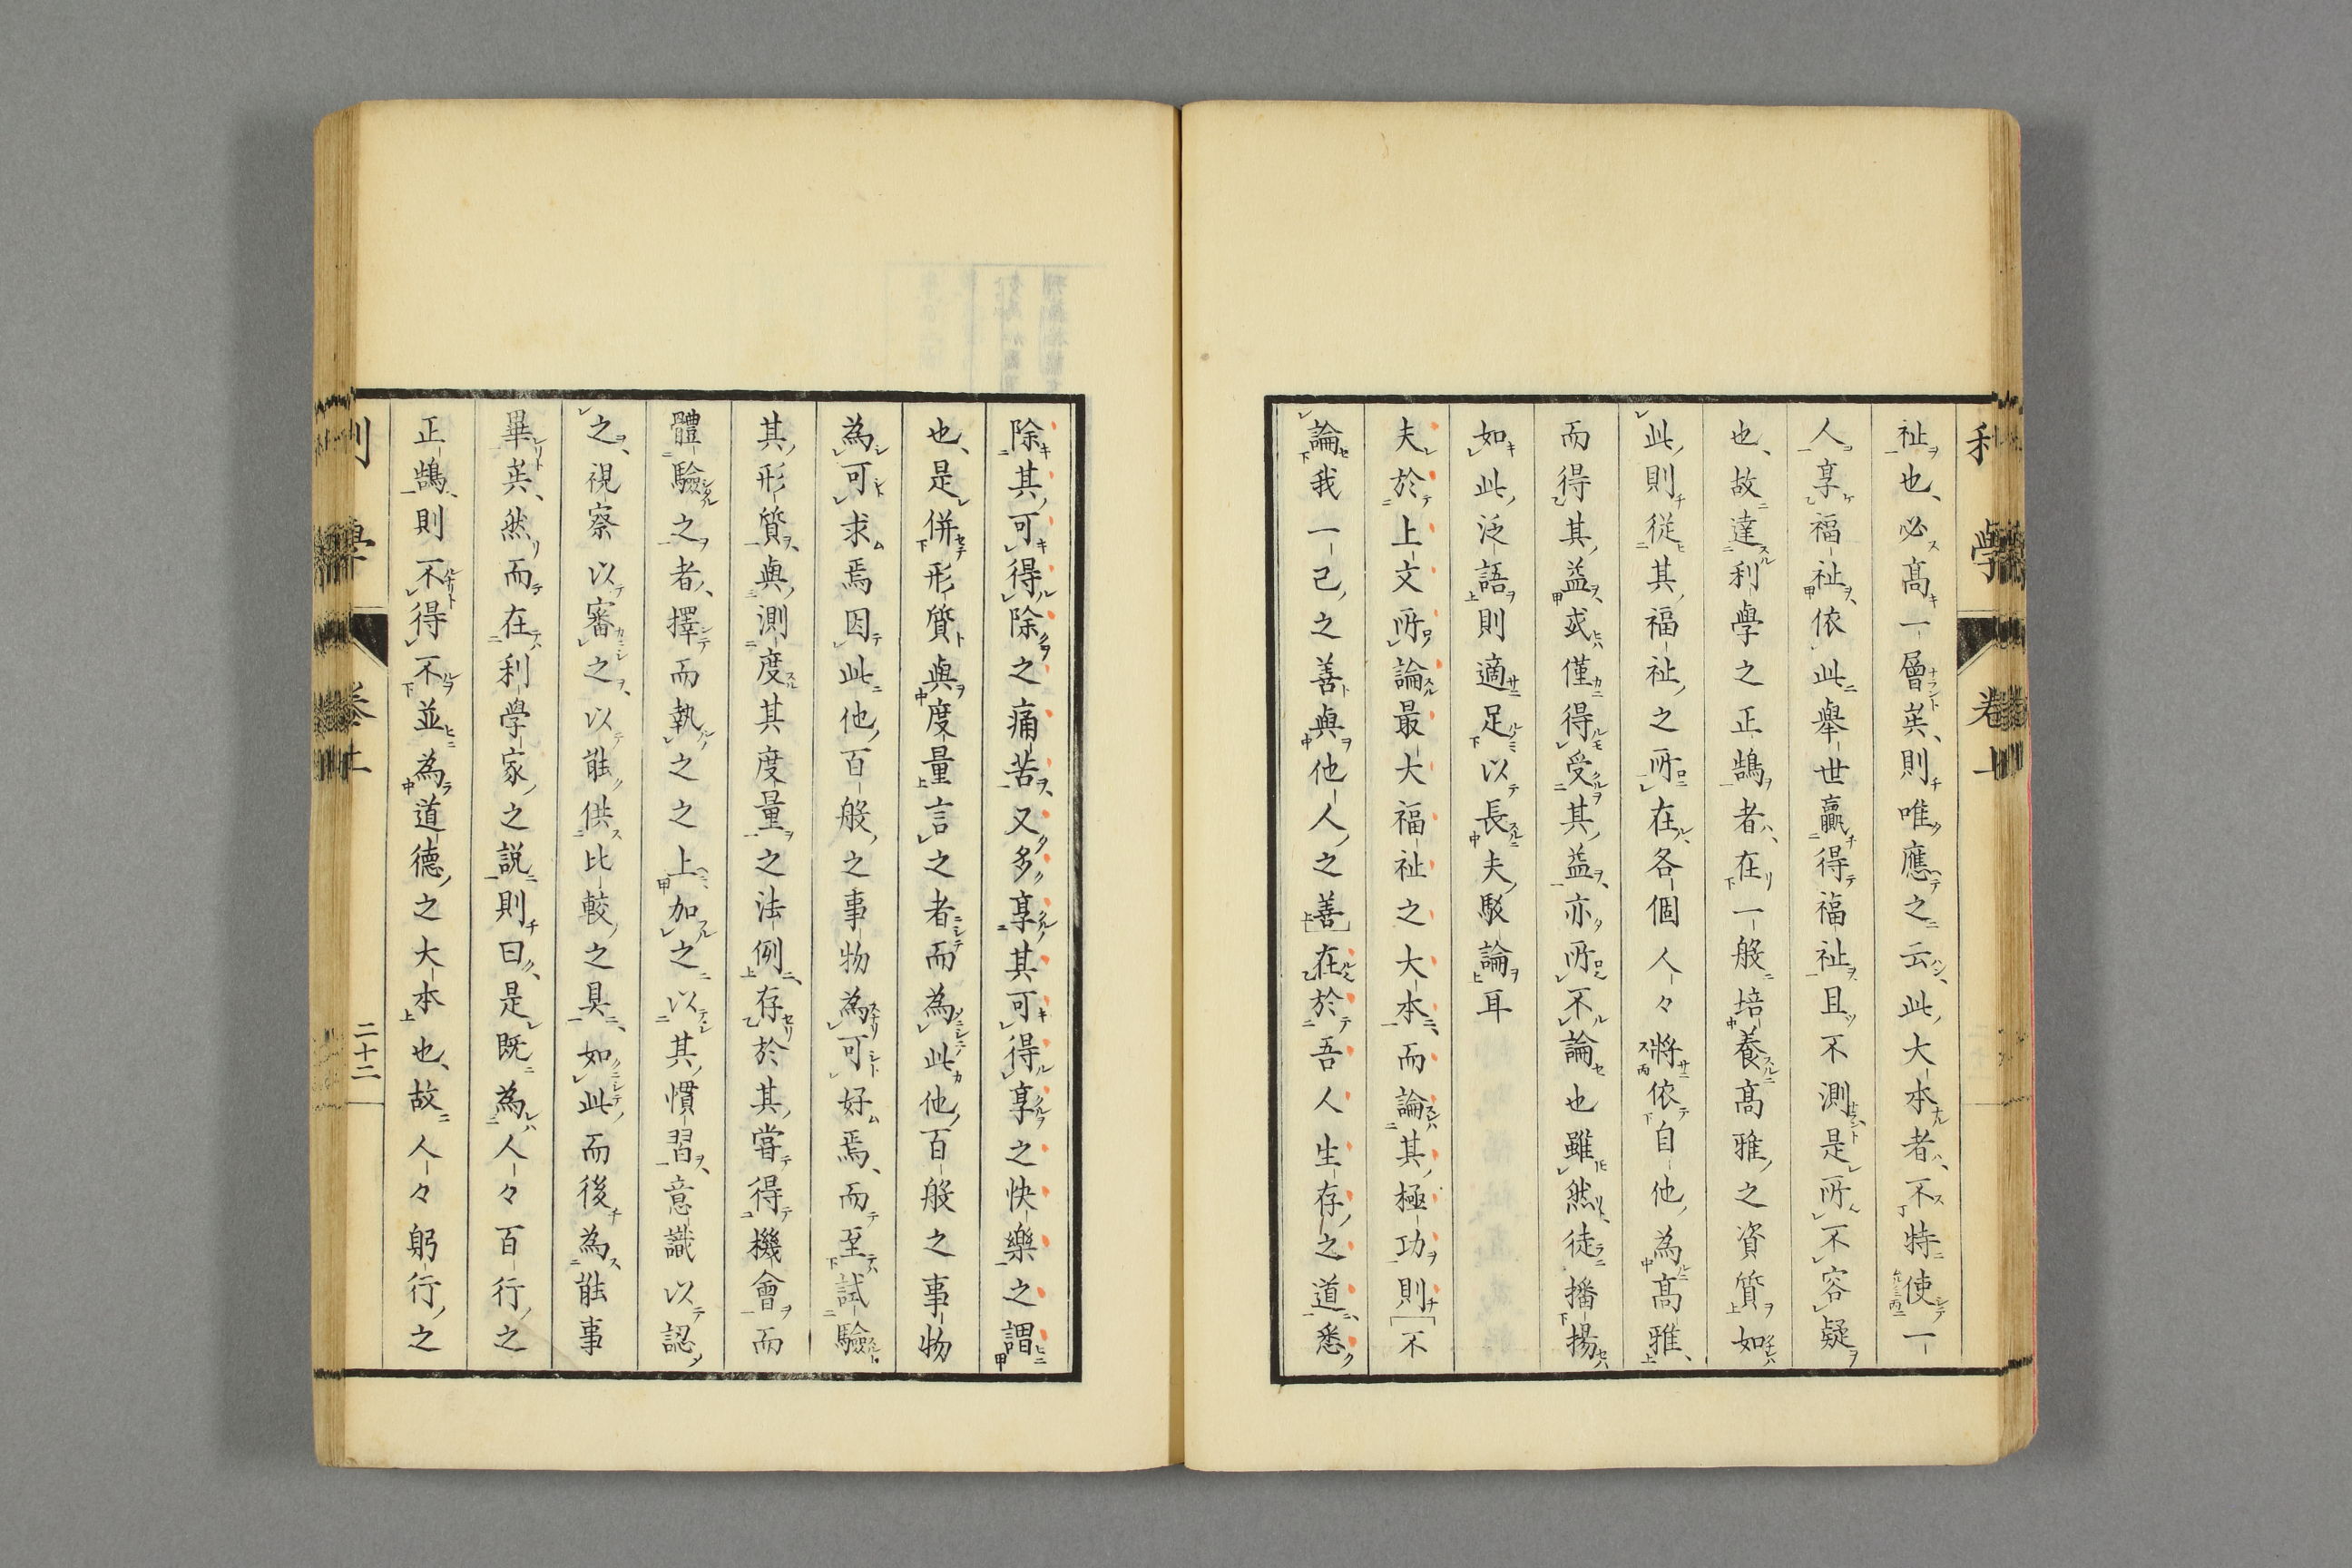 祉也、必高一層矣、則唯應之云、此大本者、不特使一
人享福祉、依此舉世贏得福祉且不測是所不容疑
也、故達利學之正鵠者、在一般培養高雅之資質如
此、則從其福祉之所在、各個人々將依自他、為高雅、
而得其益、或僅得受其益、亦所不論也雖然、徒播揚
如此泛語則適足以長夫駁論耳
夫於上文所論最大福祉之大本、而論其極功則不
論我一己之善與他人之善在於吾人生存之道、悉
除其可得除之痛苦、又多享其可得享之快樂之謂
也、是併形質與度量言之者而為此他百般之事物
為可求焉因此他百般之事物為可好焉、而至試驗
其形質、與測度其度量之法例、存於其嘗得機會而
體驗之者、擇而執之之上、加之以其慣習、意識以認
之、視察以審之、以能供比較之具、如此而後為能事
畢矣、然而在利學家之説則曰、是既為人々百行之
正鵠、則不得不並為道德之大本也、故人々躬行之
利學 卷上
利學 卷上 二十二